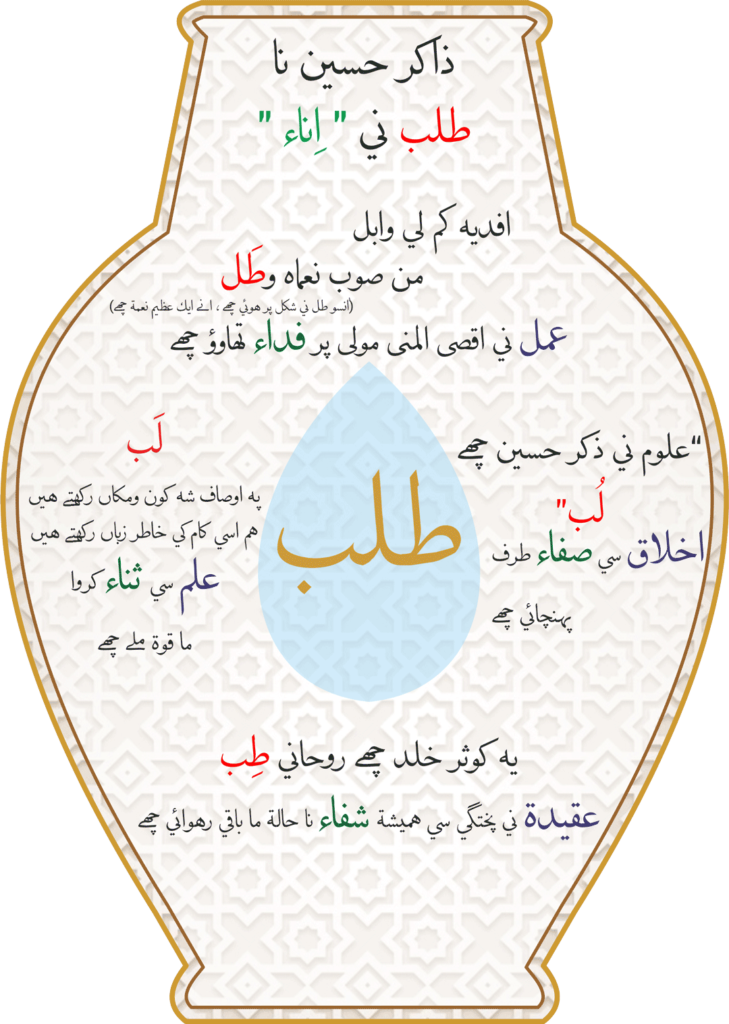 ذاكر حسين نا
طلب ني " اِناء "
افديه كم لي وابل
من صوب نعماه وطَل
(انسو طل ني شكل پر هوئي چھے ، انے ايك عظيم نعمة چھے)
عمل ني اقصى المنى مولى پر فداء تھاوؤ چھے
“علوم ني ذكر حسين چھے
لُب"
اخلاق سي صفاء طرف
پهنچائي چھے
طلب
لَب
په اوصاف شه كون ومكاں ركھتے هيں
هم اسي كام كي خاطر زباں ركھتے هيں
علم سي ثناء كروا
ما قوة ملے چھے
يه كوثر خلد چھے روحاني طِب
عقيدة ني پختگي سي هميشة شفاء نا حالة ما باقي رهوائي چھے